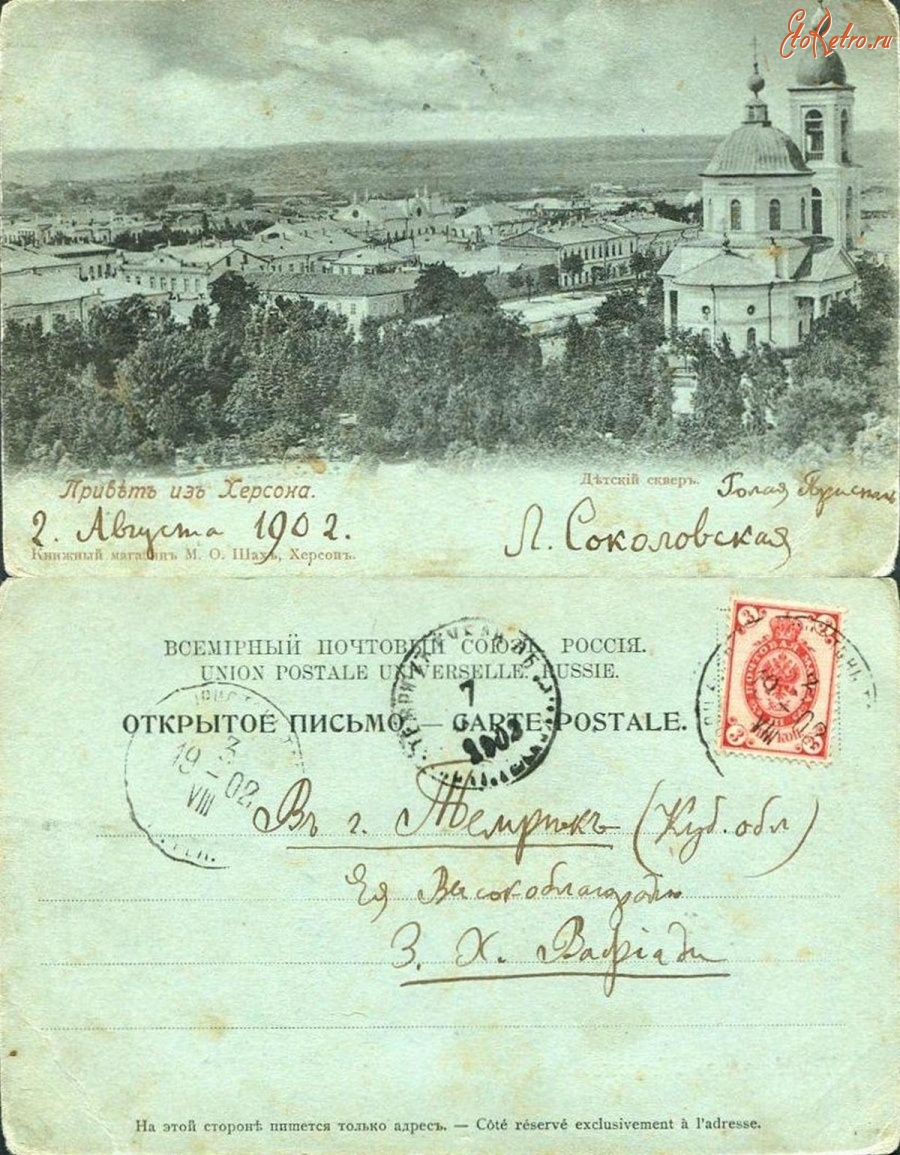 EtoRetro.ru
Привѣтъ изъ Херсона.
Дѣтскій скверъ.
Голая Пристань
2. Августа 1902.
Л. Соколовская
Книжный магазинъ М. О. Шахъ, Херсонъ.
ВСЕМІРНЫЙ ПОЧТОВЫЙ СОЮЗЪ. РОССІЯ.
UNION POSTALE UNIVERSELLE. RUSSIE.
ОТКРЫТОЕ ПИСЬМО. — CARTE POSTALE.
3
19 – 02
VIII
7
1902
3 3
ПОЧТОВАЯ МАРКА
3 3
Въ г. Темрюкъ (Куб. обл)
Ея Высокоблагородію
З. Х. Вафіади
На этой сторонѣ пишется только адресъ. — Côté réservé exclusivement à l'adresse.